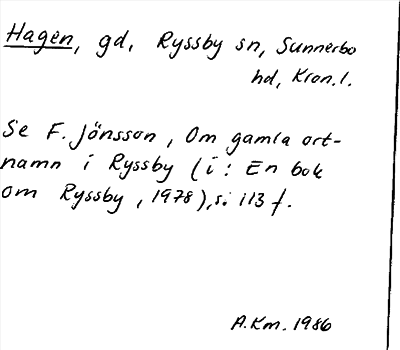 Hagen, gd, Ryssby sn, Sunnerbo
hd, Kron. l.
Se F. Jönsson, Om gamla ort-
namn i Ryssby (i: En bok
om Ryssby, 1978), s. 113 f.
A.Km. 1986